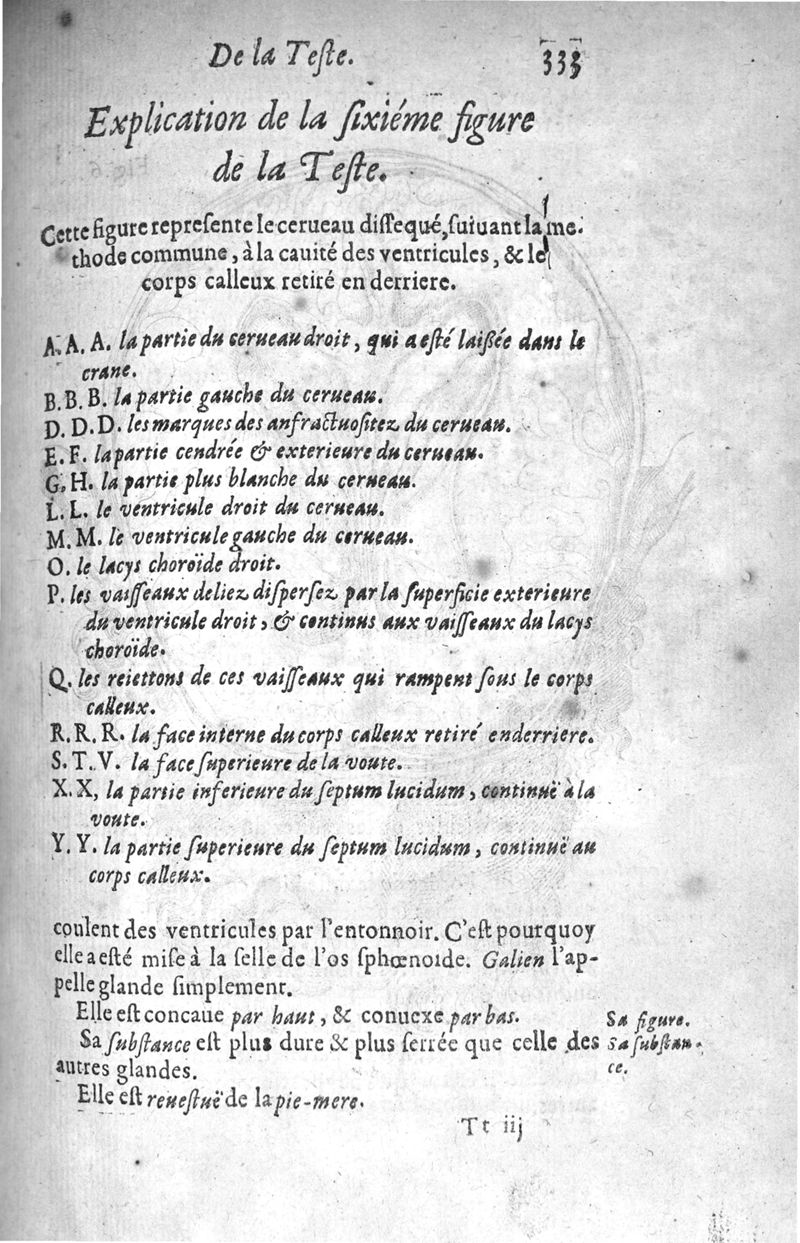 De la Teſte. 333
Explication de la ſixiéme figure
de la Teſte.
Cette figure repreſente le cerueau diſſequé, ſuiuant la me-
thode commune, à la cauité des ventricules, & le
corps calleux retiré en derriere.
A. A. A. la partie du cerueau droit, qui a eſté laiſſée dans le
crane.
B. B. B. la partie gauche du cerueau.
D. D. D. les marques des anfractuoſitez du cerueau.
E. F. la partie cendrée & exterieure du cerueau.
G. H. la partie plus blanche du cerueau.
L. L. le ventricule droit du cerueau.
M. M. le ventricule gauche du cerueau.
O. le lacys choroïde droit.
P. les vaiſſeaux deliez diſperſez par la ſuperficie exterieure
du ventricule droit, & continus aux vaiſſeaux du lacys
choroïde.
Q. les reiettons de ces vaiſſeaux qui rampent ſous le corps
calleux.
R. R. R. la face interne du corps calleux retiré en derriere.
S. T. V. la face ſuperieure de la voute.
X. X, la partie inferieure du ſeptum lucidum, continuë à la
voute.
Y. Y. la partie ſuperieure du ſeptum lucidum, continuë au
corps calleux.
coulent des ventricules par l'entonnoir. C'eſt pourquoy
elle a eſté miſe à la ſelle de l'os ſphœnoide. Galien l'ap-
pelle glande ſimplement.
Elle eſt concaue par haut, & conuexe par bas. Sa figure.
Sa ſubſtance eſt plus dure & plus ſerrée que celle des Sa ſubſtan-
autres glandes. ce.
Elle eſt reueſtuë de la pie-mere.
Tt iij